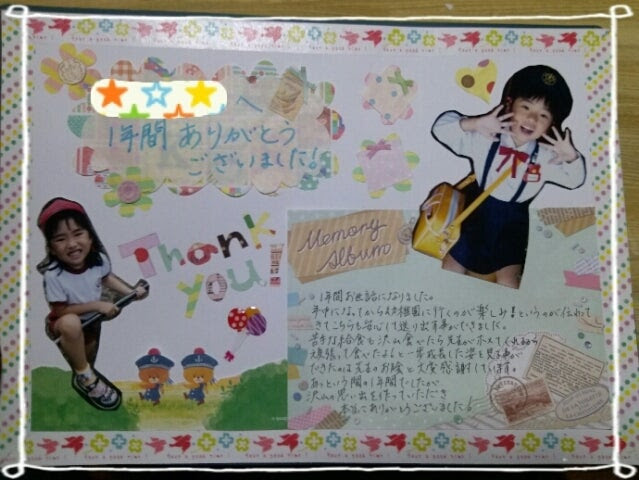 へ
1年間 ありがとう
ございました!
Thank
you!!
Memory
Album
1年間お世話になりました。
年中になってから幼稚園に行くのが楽しみ!というのが伝わって
きてこちらも安心して送り出す事ができました。
苦手な給食も沢山食べたら先生がホメてくれるから
頑張って食べたよと一番成長した姿を見る事が
できたのは先生のお陰と大変感謝しています。
あっという間の1年間でしたが
沢山の思い出を作っていただき
本当にありがとうございました!